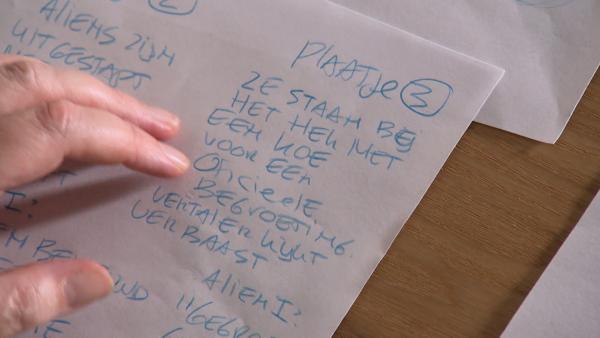 2
ALIENS ZIJN
UITGESTAPT
PLAATJE 3
ZE STAAN BIJ
HET HEK MET
EEN KOE
VOOR EEN
OFICIEELE
BEGROETING.
VERTALER KIJKT
VERBAAST
ALIEN I:
I: